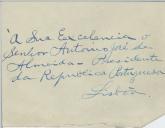 A Sua Excelencia o
Senhor Antonio José de
Almeida - Presidente
da Republica Portuguesa
Lisbôa.